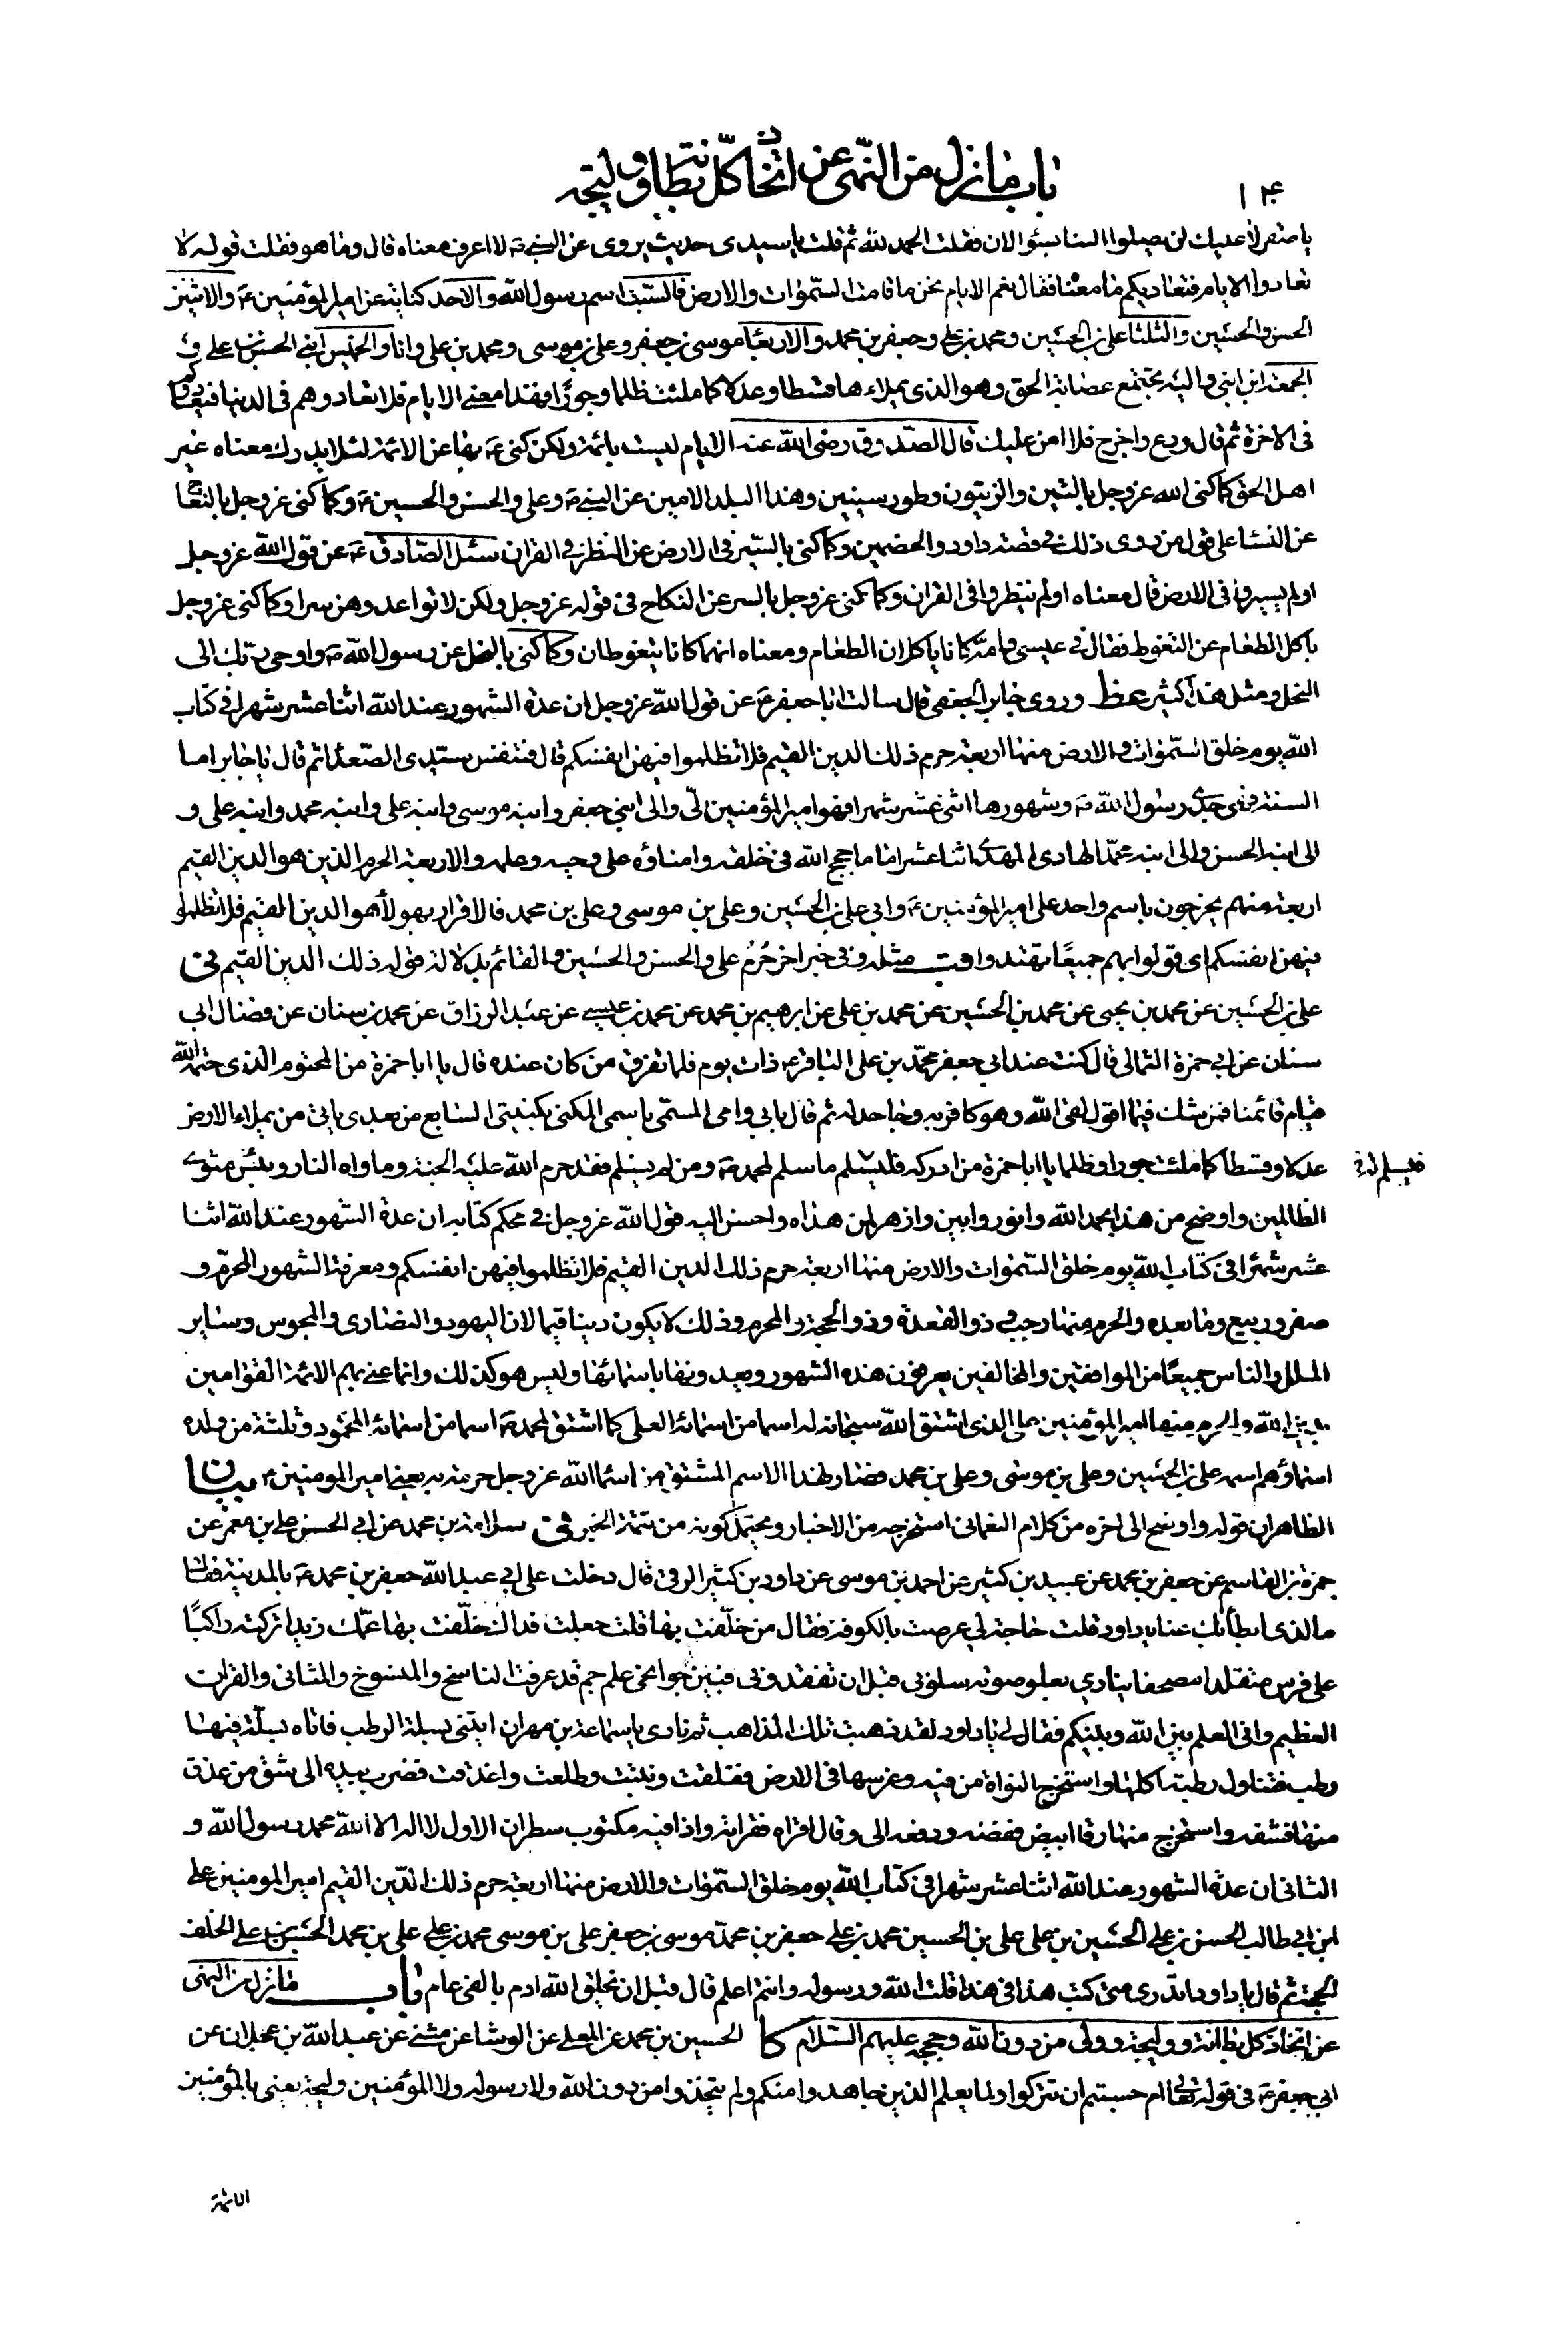 باب ما نزل من النهى عن اتخاذ كل بطانة و وليجة
يا صقر لا عليك لن يصلوا الينا بسؤ الان فقلت الحمد لله ثم قلت يا سيدى حديث يروى عن النبى ص لا اعرف معناه قال وما هو فقلت قوله لا
تعادوا الايام فتعاديكم ما معناه فقال نعم الايام نحن ما قامت السموات والارض فالسبت اسم رسول الله والاحد كناية عن امير المؤمنين ع والاثنين
الحسن والحسين والثلثا على بن الحسين ومحمد بن على وجعفر بن محمد والاربعا موسى بن جعفر وعلى بن موسى ومحمد بن على وانا والخميس ابنى الحسن بن على و
الجمعة ابن ابنى واليه تجتمع عصابة الحق وهو الذى يملاءها قسطا وعدلا كما ملئت ظلما وجورا فهذا معنى الايام فلا تعادوهم فى الدنيا فيعادوكم
فى الاخرة ثم قال ودع واخرج فلا امن عليك قال الصدوق رضى الله عنه الايام ليست بائمة ولكن كنى ع بها عن الائمة لئلا يدرك معناه غير
اهل الحق كما كنى الله عز وجل بالتين والزيتون وطور سينين وهذا البلد الامين عن النبى ص وعلى والحسن والحسين ع وكما كنى عز وجل بالنعاج
عن النسا على قول من روى ذلك فى قصة داود والخصمين وكما كنى بالسير فى الارض عن النظر فى القران سئل الصادق ع عن قول الله عز وجل
اولم يسيروا فى الارض قال معناه اولم ينظروا فى القران وكما كنى عز وجل بالسر عن النكاح فى قوله عز وجل ولكن لا تواعدوهن سرا وكما كنى عز وجل
باكل الطعام عن التغوط فقال فى عيسى وامه كانا ياكلان الطعام ومعناه انهما كانا يتغوطان وكما كنى بالنحل عن رسول الله ص واوحى ربك الى
النحل ومثل هذا كثير عظ وروى جابر الجعفى قال سالت ابا جعفر ع عن قول الله عز وجل ان عدة الشهور عند الله اثنا عشر شهرا فى كتاب
الله يوم خلق السموات والارض منها اربعة حرم ذلك الدين القيم فلا تظلموا فيهن انفسكم قال فتنفس سيدى الصعدا ثم قال يا جابر اما
السنة فهى جدى رسول الله ص وشهورها اثنى عشر شهرا فهو امير المؤمنين الى والى ابنى جعفر وابنه موسى وابنه على وابنه محمد وابنه على و
الى ابنه الحسن والى ابنه محمد الهادى المهدى اثنا عشر اماما حجج الله فى خلقه وامناؤه على وحيه وعلمه والاربعة الحرم الذين هو الدين القيم
اربعة منهم يخرجون باسم واحد على امير المؤمنين ع وابى على بن الحسين وعلى بن موسى وعلى بن محمد فالاقرار بهولاء هو الدين القيم فلا تظلموا
فيهن انفسكم اى قولوا بهم جميعا تهتدوا قب مثله وفى خبر اخر حرم على والحسن والحسين والقائم بدلالة قوله ذلك الدين القيم نى
على بن الحسين عن محمد بن يحيى عن محمد بن الحسين عن محمد بن على عن ابرهيم بن محمد عن محمد بن عيسى عن عبد الرزاق عن محمد بن سنان عن فضال ابى
سنان عن ابى حمزة الثمالى قال كنت عند ابى جعفر محمد بن على الباقر ع ذات يوم فلما تفرق من كان عنده قال يا ابا حمزة من المحتوم الذى حتمه الله
قيام قائمنا فمن شك فيما اقول لقى الله وهو كافر به وجاحد له ثم قال بابى وامى المسمى باسمى المكنى بكنيتى السابع من بعدى يابى من يملاء الارض
عدلا وقسطا كما ملئت جورا وظلما يا ابا حمزة من ادركه فليسلم ما سلم لمحمد ص ومن لم يسلم فقد حرم الله عليه الجنة وماواه النار وبئس مثوى
فليسلم له خ
الظالمين واوضح من هذا بحمد الله وانور وابين وازهر لمن هداه واحسن اليه قول الله عز وجل فى محكم كتابه ان عدة الشهور عند الله اثنا
عشر شهرا فى كتاب الله يوم خلق السموات والارض منها اربعة حرم ذلك الدين القيم فلا تظلموا فيهن انفسكم ومعرفة الشهور المحرم و
صفر وربيع وما بعده والحرم منها رجب و ذو القعدة وذو الحجة والمحرم وذلك لا يكون دينا قيما لان اليهود والنصارى والمجوس وساير
الملل والناس جميعا من الموافقين والمخالفين يعرفون هذه الشهور ويعدونها باسمائها وليس هو كذلك وانما عنى بهم الائمة القوامين
بدين الله والحرم منها امير المؤمنين على الذى اشتق الله سبحانه له اسما من اسمائه العلى كما اشتق لمحمد ص اسما من اسمائه المحمود وثلثة من ولده
اسماؤهم اسمه على بن الحسين وعلى بن موسى وعلى بن محمد فصار لهذا الاسم المشتق من اسما الله عز وجل حرمة به يعنى امير المومنين ع بيان
الظاهر ان قوله واوضح الى اخره من كلام النعمانى استخرجه من الاخبار ويحتمل كونه من تتمة الخبر نى سلامة بن محمد عن ابى الحسن على بن معمر عن
حمزة بن القاسم عن جعفر بن محمد عن عبيد بن كثير عن احمد بن موسى عن داود بن كثير الرقى قال دخلت على ابى عبد الله جعفر بن محمد ع بالمدينة فقال
ما الذى ابطأ بك عنا يا داود قلت حاجة لى عرضت بالكوفة فقال من خلفت بها قلت جعلت فداك خلفت بها عمك زيدا تركته راكبا
على فرس متقلدا مصحفا ينادى بعلو صوته سلونى قبل ان تفقدونى فبين جوانحى علم جم قد عرفت الناسخ والمنسوخ والمثانى والقران
العظيم وانى العلم بين الله وبينكم فقال لى يا داود لقد ذهبت بك المذاهب ثم نادى يا سماعة بن مهران ايتنى بسلة الرطب فاتاه بسلة فيها
رطب فتناول رطبة اكلها واستخرج النواة من فيه وغرسها فى الارض ففلقت ونبتت وطلعت واغذقت فضرب بيده الى شق من عذق
منها فشقه واستخرج منها رقا ابيض ففضه ودفعه الى وقال اقراه فقراته واذا فيه مكتوب سطران الاول لا اله الا الله محمد رسول الله و
الثانى ان عدة الشهور عند الله اثنا عشر شهرا فى كتاب الله يوم خلق السموات والارض منها اربعة حرم ذلك الدين القيم امير المومنين على
ابن ابى طالب الحسن بن على الحسين بن على على بن الحسين محمد بن على جعفر بن محمد موسى بن جعفر على بن موسى محمد بن على على بن محمد الحسن بن على الخلف
الحجة ثم قال يا داود ا تدرى متى كتب هذا فى هذا قلت الله ورسوله وانتم اعلم قال قبل ان يخلق الله ادم بالفى عام باب ما نزل من النهى
عن اتخاذ كل بطانة ووليجة وولى من دون الله وحججه عليهم السلام كا الحسين بن محمد عن المعلى عن الوشا عن مثنى عن عبد الله بن عجلان عن
ابى جعفر ع فى قوله تعالى ام حسبتم ان تتركوا ولما يعلم الذين جاهدوا منكم ولم يتخذوا من دون الله ولا رسوله ولا المؤمنين وليجة يعنى بالمؤمنين
الائمة